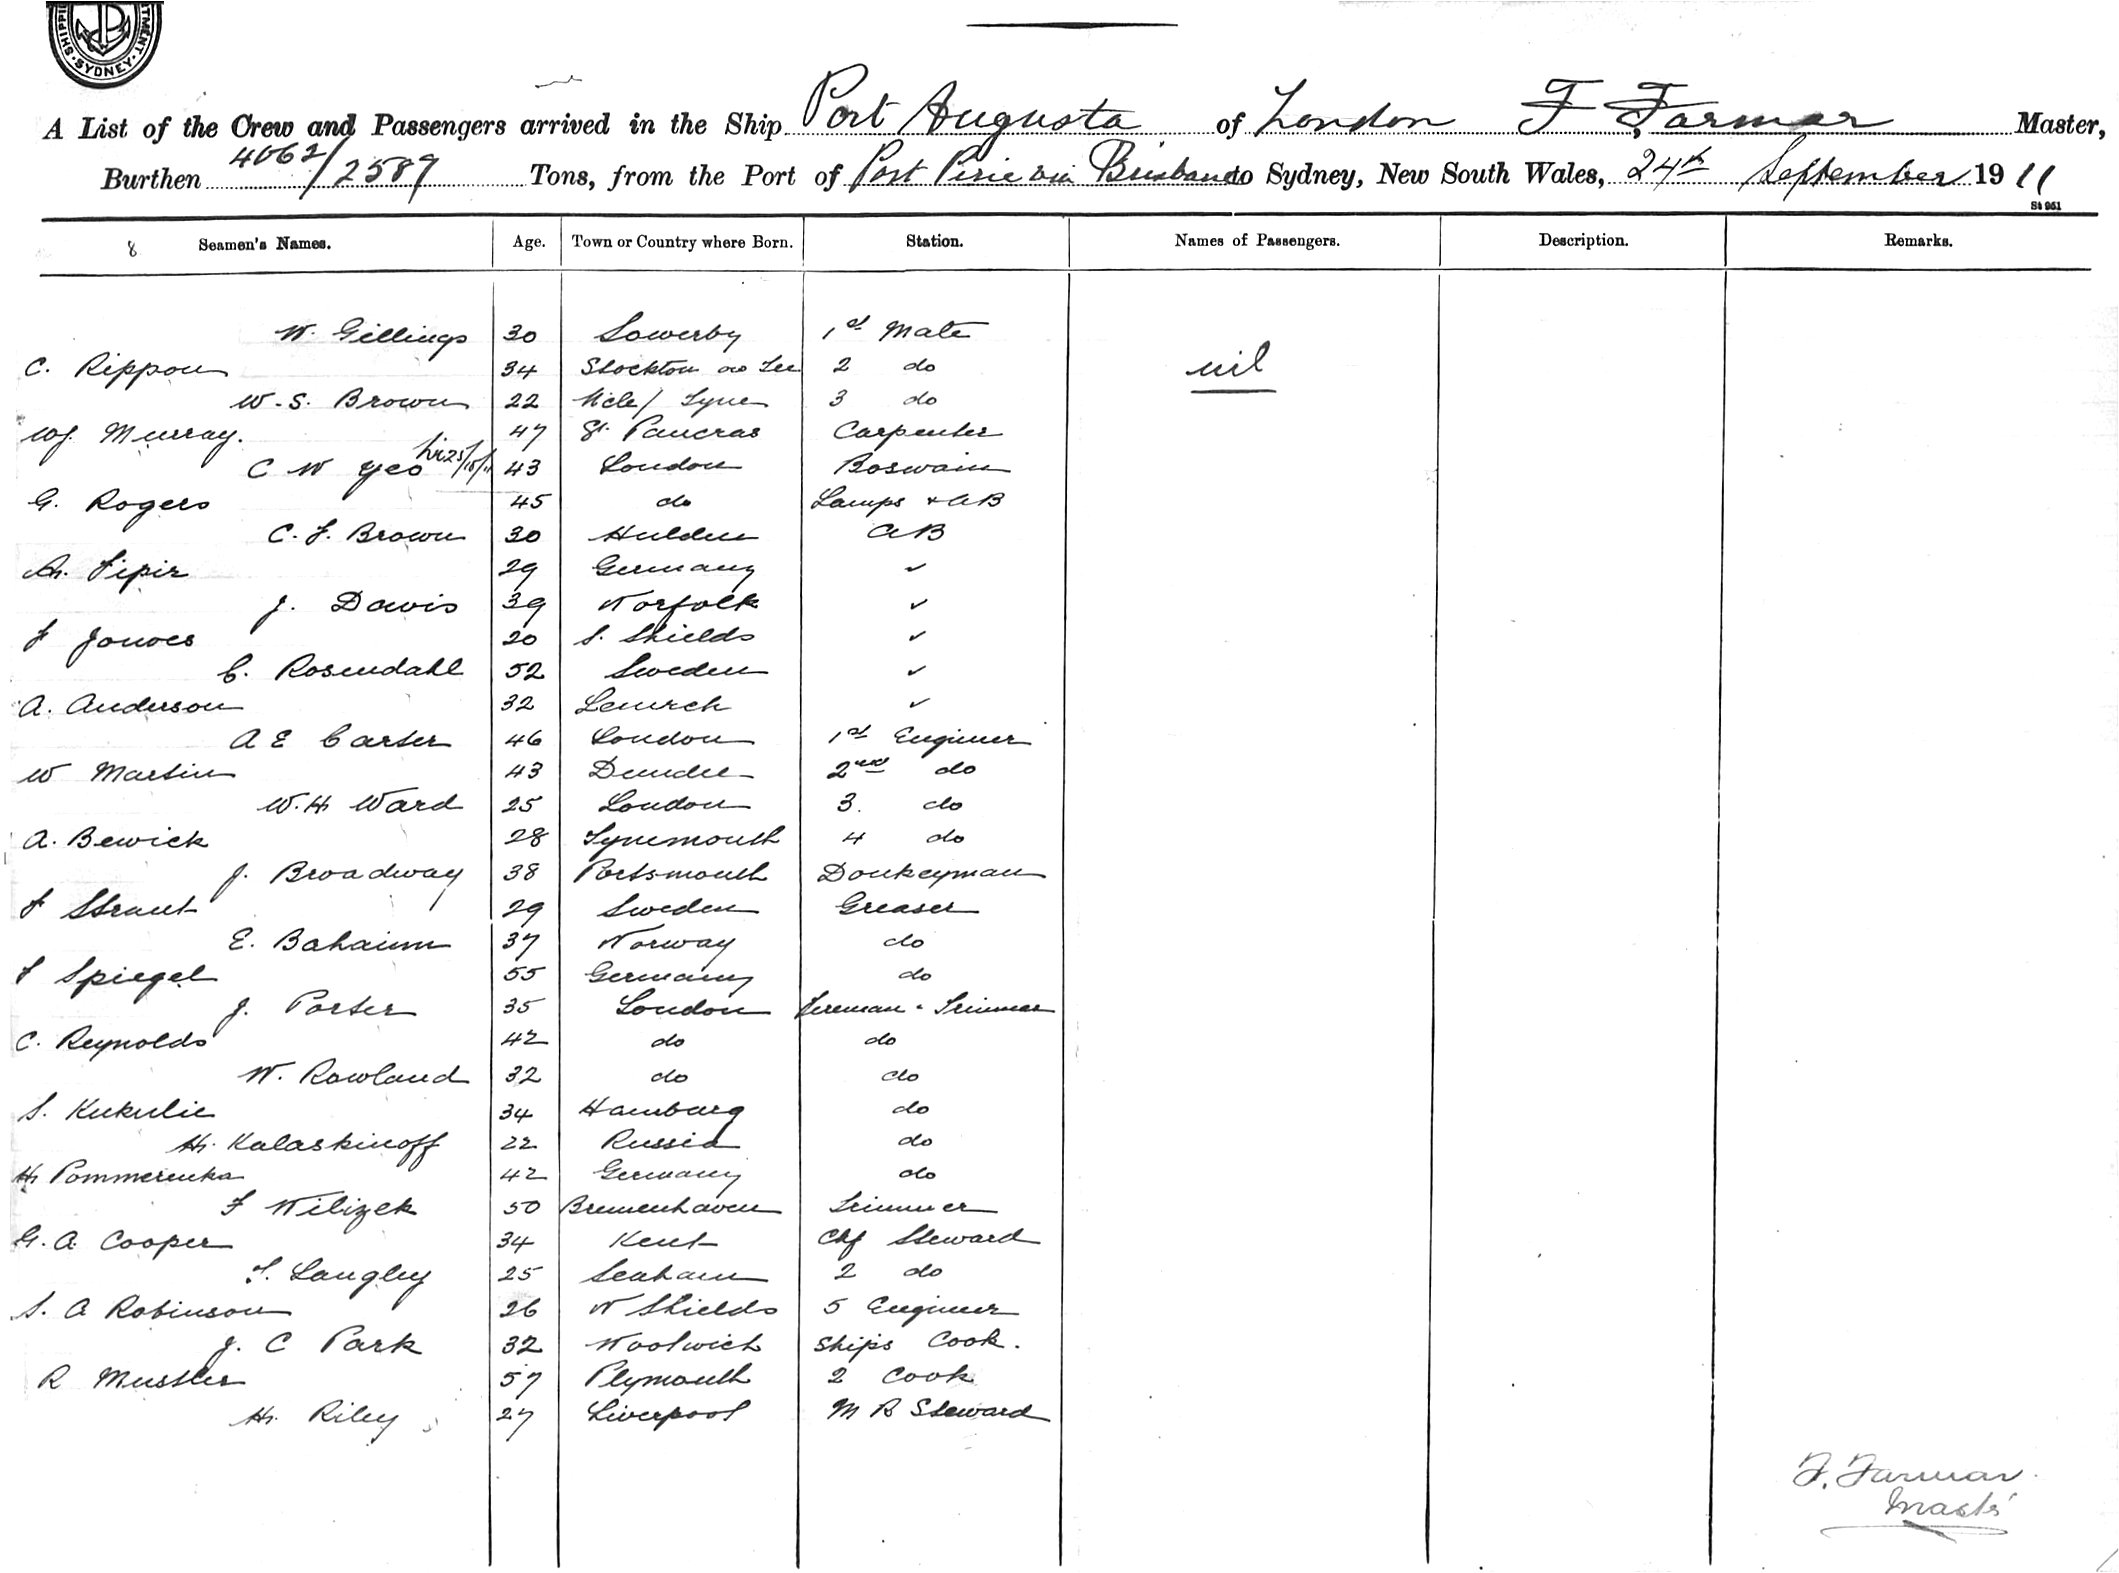 SHIPPI TMENT. SYDNEY
A List of the Crew and Passengers arrived in the Ship Port Augusta of London F Farmar Master,
Burthen 4062/2589 Tons, from the Port of Port Pirie via Brisbane to Sydney, New South Wales, 24th September 1911
St 961
8 Seamen's Names. Age. Town or Country where Born. Station. Names of Passengers. Description. Remarks.
W. Gillings 30 Sowerby 1st Mate
C. Rippon 34 Stockton on Tee 2 do nil
W. S. Brown 22 Ncle/Tyne 3 do
WJ. Murray. 47 St. Pancras Carpenter
C W Yeo 43 London Boswain
G. Rogers 45 do Lamps + AB
C. F. Brown 30 AB
H. 29 Germany ✓
J. Davis 39 Norfolk ✓
F Jones 20 S. Shields ✓
C. Rosendahl 52 Sweden ✓
A. Anderson 32 ✓
A E Carter 46 London 1st Engineer
W Martin 43 Dundee 2nd do
W. H Ward 25 London 3. do
A. Bewick 28 Tynemouth 4 do
J. Broadway 38 Portsmouth Donkeyman
F 29 Sweden Greaser
E. 37 Norway do
F Spiegel 55 Germany do
J. Porter 35 London Fireman & Trimmer
C. Reynolds 42 do do
W. Rowland 32 do do
S. Kukulie 34 Hamburg do
H. Kalaskinoff 22 Russia do
H Pommerenka 42 Germany do
F Wilizek 50 Bremenhaven Trimmer
G. A. Cooper 34 Kent Chf Steward
T. Langley 25 Seaham 2 do
S. A Robinson 26 N Shields 5 Engineer
J. C Park 32 Woolwich Ships Cook.
R 57 Plymouth 2 Cook
H. Riley 27 Liverpool M R Steward
F. Farmar.
Master